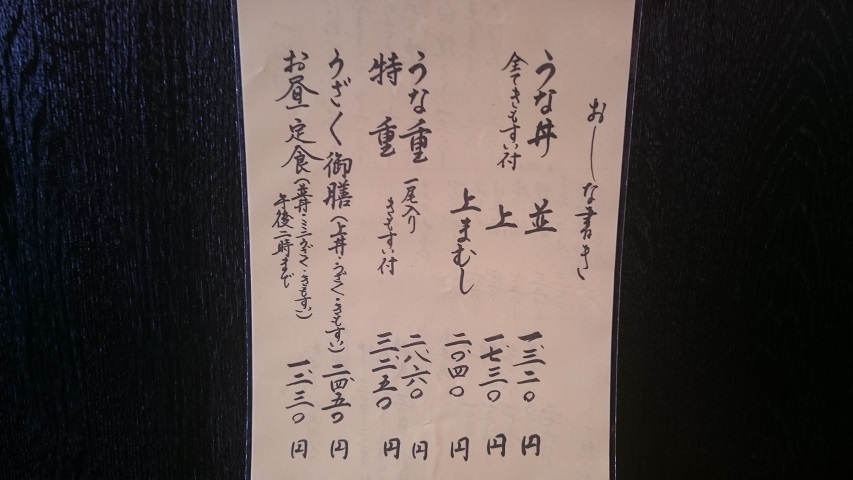 おしな書き
うな丼 並 一、三二〇円
全てきもすい付
上 一、七三〇円
上まむし 二、〇四〇円
うな重 一尾入り 二、八六〇円
特重 きもすい付 三、二五〇円
うざく御膳(上丼・うざく・きもすい) 二、四五〇円
お昼定食(並丼・ミニうざく・きもすい) 一、二三〇円
午後二時まで